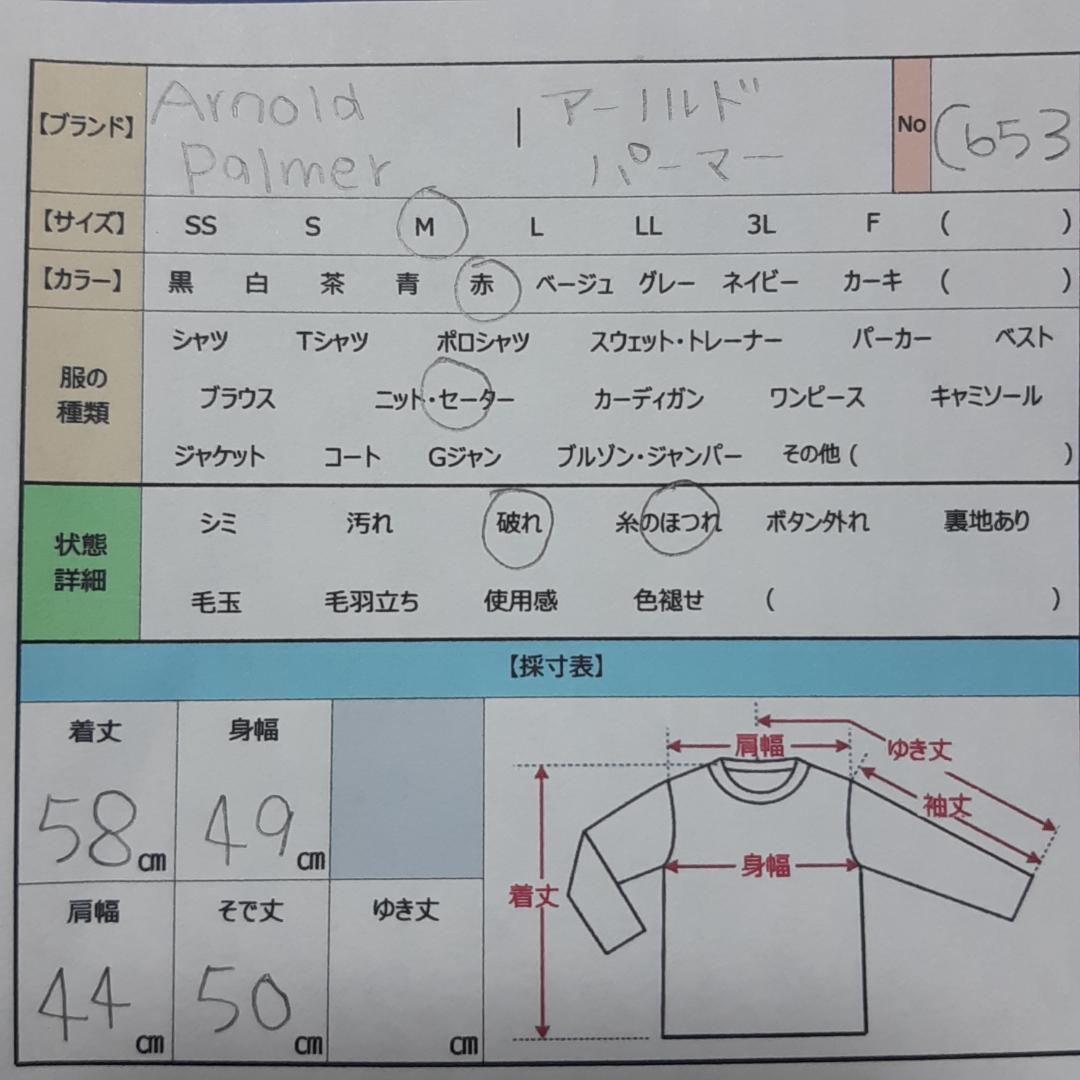 【ブランド】 Arnold Palmer | アーノルド パーマー No (653
【サイズ】 SS S M L LL 3L F ( )
【カラー】 黒 白 茶 青 赤 ベージュ グレー ネイビー カーキ ( )
服の種類 シャツ Tシャツ ポロシャツ スウェット・トレーナー パーカー ベスト
ブラウス ニット・セーター カーディガン ワンピース キャミソール
ジャケット コート Gジャン ブルゾン・ジャンパー その他 ( )
状態詳細 シミ 汚れ 破れ 糸のほつれ ボタン外れ 裏地あり
毛玉 毛羽立ち 使用感 色褪せ ( )
【採寸表】
着丈 身幅
58cm 49cm
肩幅 そで丈 ゆき丈
44cm 50cm cm
肩幅 ゆき丈
袖丈
身幅
着丈